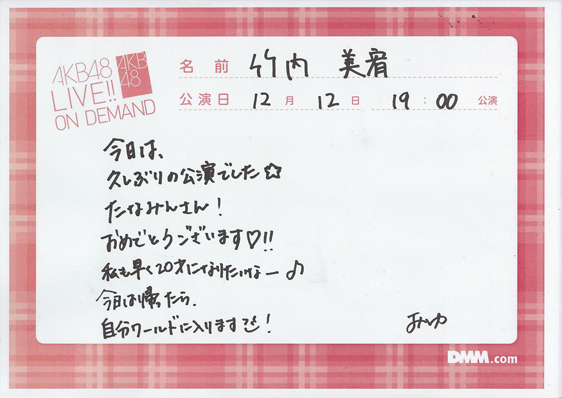 AKB48
LIVE!!
ON DEMAND
AKB
48
名前 竹内 美宥
公演日 12月 12日 19:00 公演
今日は、
久しぶりの公演でした☆
たなみんさん!
おめでとうございます♡!!
私も早く20才になりたいなー♪
今日は帰ったら、
自分ワールドに入りますでも!
みゆ
DMM.com